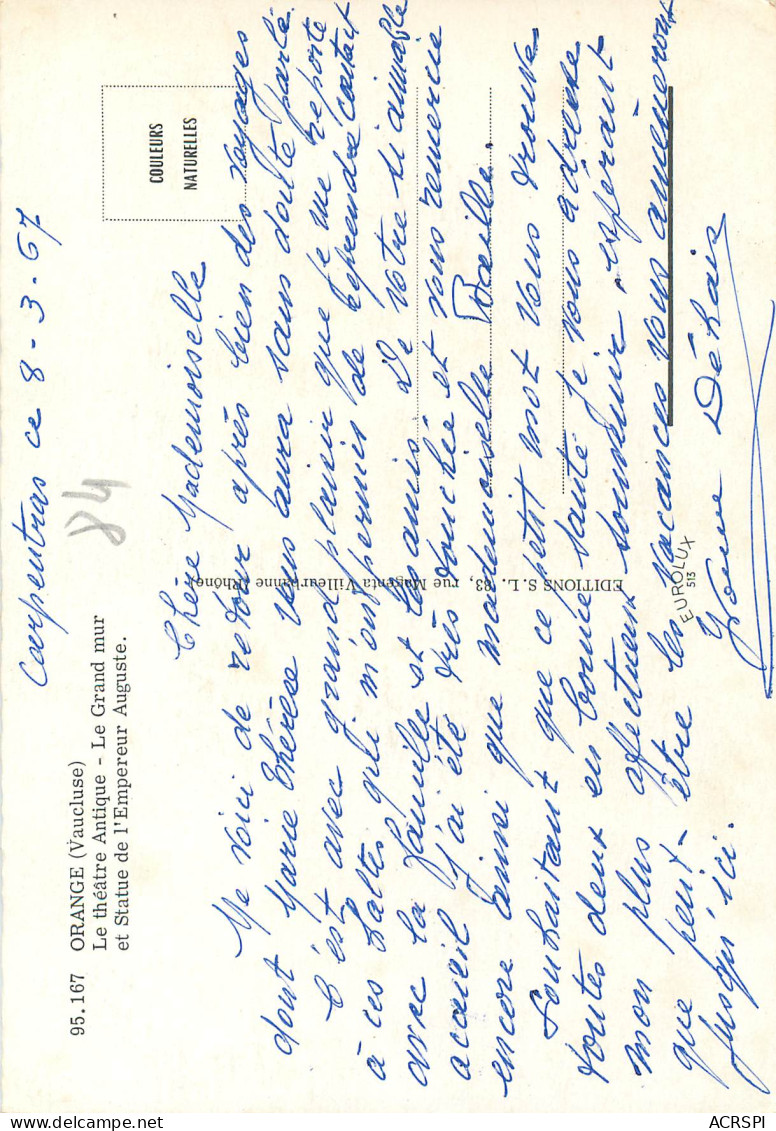 95.167 ORANGE (Vaucluse)
Le théâtre Antique - Le Grand mur
et Statue de l'Empereur Auguste.
Carpentras ce 8-3-67
84
COULEURS
NATURELLES
Chère Mademoiselle
Me voici de retour après bien des voyages
dont Marie Thérèse vous aura sans doute parlé.
C'est avec grand plaisir que je me reporte
à ces haltes qui m'ont permis de reprendre contact
avec la famille et les amis. De votre si aimable
accueil j'ai été très touchée et vous remercie
encore ainsi que mademoiselle Baille.
Souhaitant que ce petit mot vous trouve
toutes deux en bonne santé je vous adresse
mon plus affectueux souvenir, espérant
que peut-être les vacances vous amèneront
jusqu'ici.
Déhais
EDITIONS S.L. 83, rue Magenta Villeurbanne (Rhône)
EUROLUX
513
delcampe.net
ACRSPI